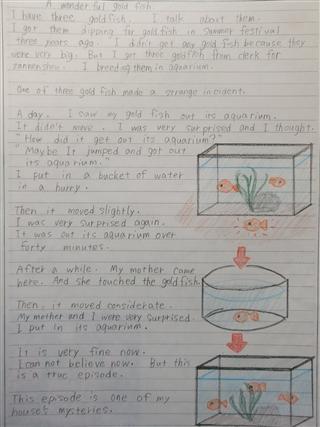 A wonderful gold fish
I have three goldfish. I talk about them.
I got them dipping for goldfish in Summer festival
three years ago. I didn't get any gold fish because they
were very big. But I got three goldfish from clerk for
zannensho. I breeding them in aquarium.
One of three goldfish made a strange incident.
A day. I saw my gold fish out its aquarium.
It didn't move. I was very surprised and I thought.
"How did it get out its aquarium?"
"Maybe It jumped and got out
its aquarium."
I put in a bucket of water
in a hurry.
Then it moved slightly.
I was very surprised again.
It was out its aquarium over
forty minutes.
After a while. My mother came
here. And she touched the goldfish.
Then, it moved considerate.
My mother and I were very surprised.
I put in its aquarium.
It is very fine now.
I can not believe now. But this
is a true episode.
This episode is one of my
house's mysteries.